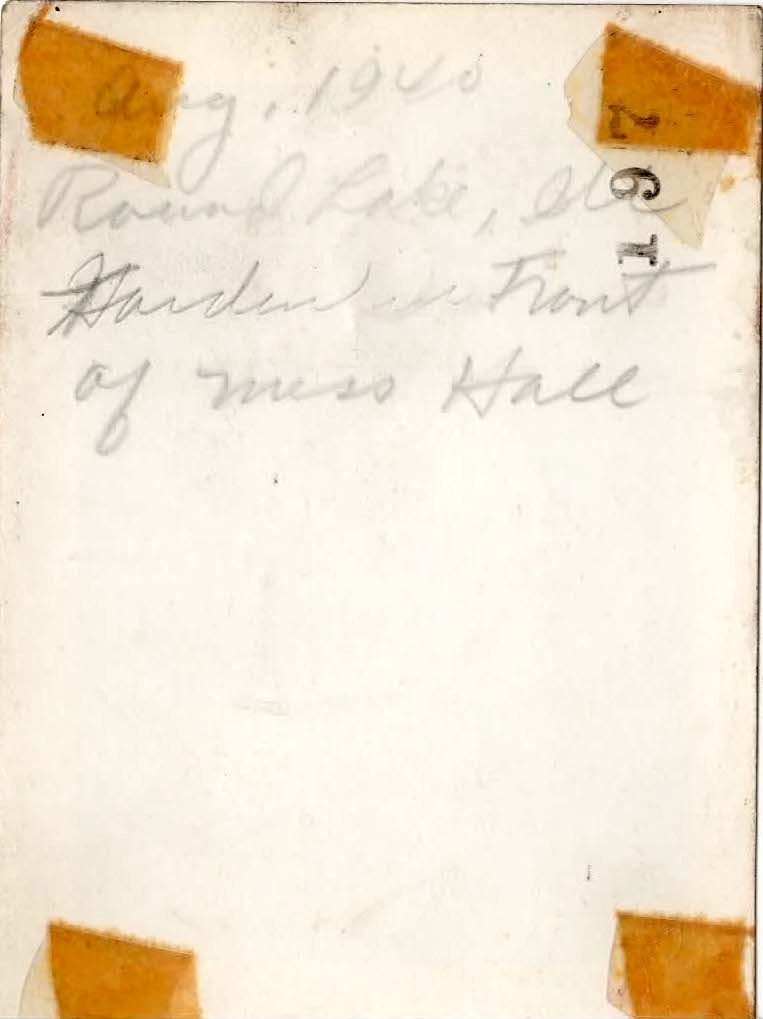 Aug, 1940
Round Lake, Ill
Garden in Front
of mess Hall
167